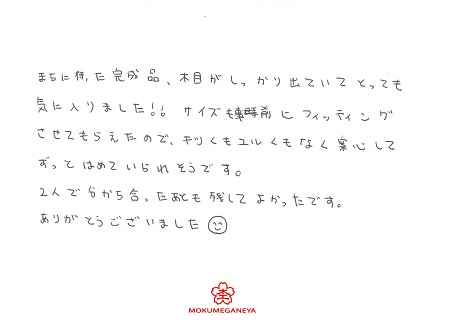 まちに待った完成品、木目がしっかり出ていてとっても
気に入りました!! サイズも事前にフィッティング
させてもらえたので、キツくもユルくもなく安心して
ずっとはめていられそうです。
2人で分かち合ったあとも残してよかったです。
ありがとうございました
MOKUMEGANEYA